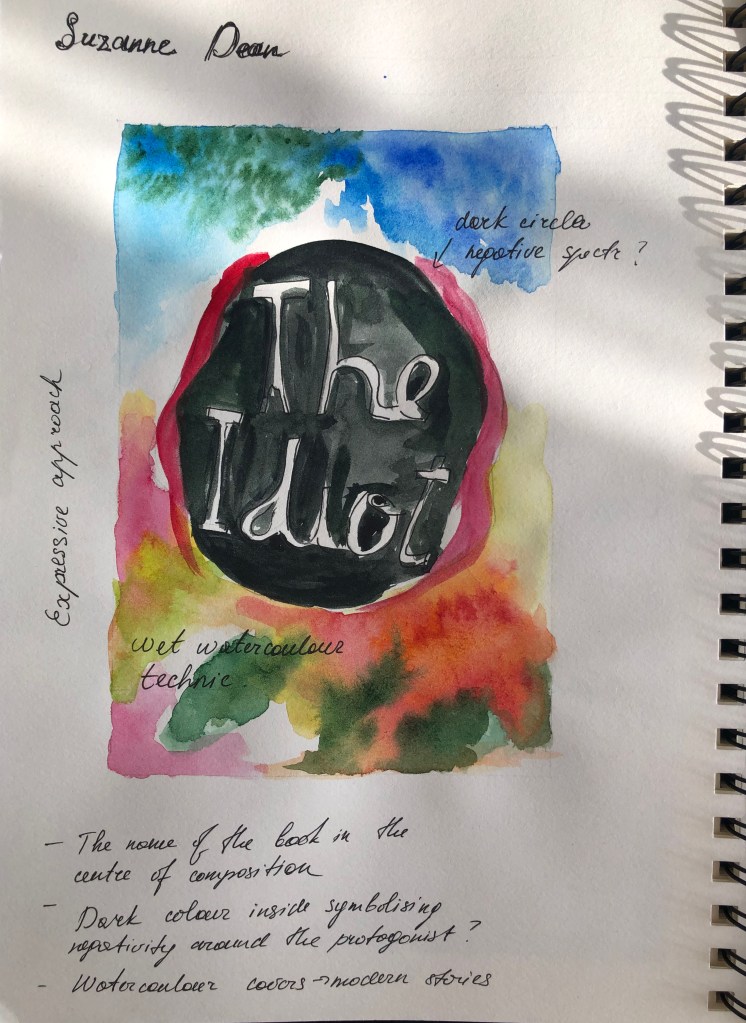 Suzanne Dean
dark circle
negative spectr ?
The
Idiot
Expressive approach
wet watercoulour
technic.
- The name of the book in the
centre of composition
- Dark colour inside symbolising
negativity around the protagonist ?
- Watercoulour covers → modern stories